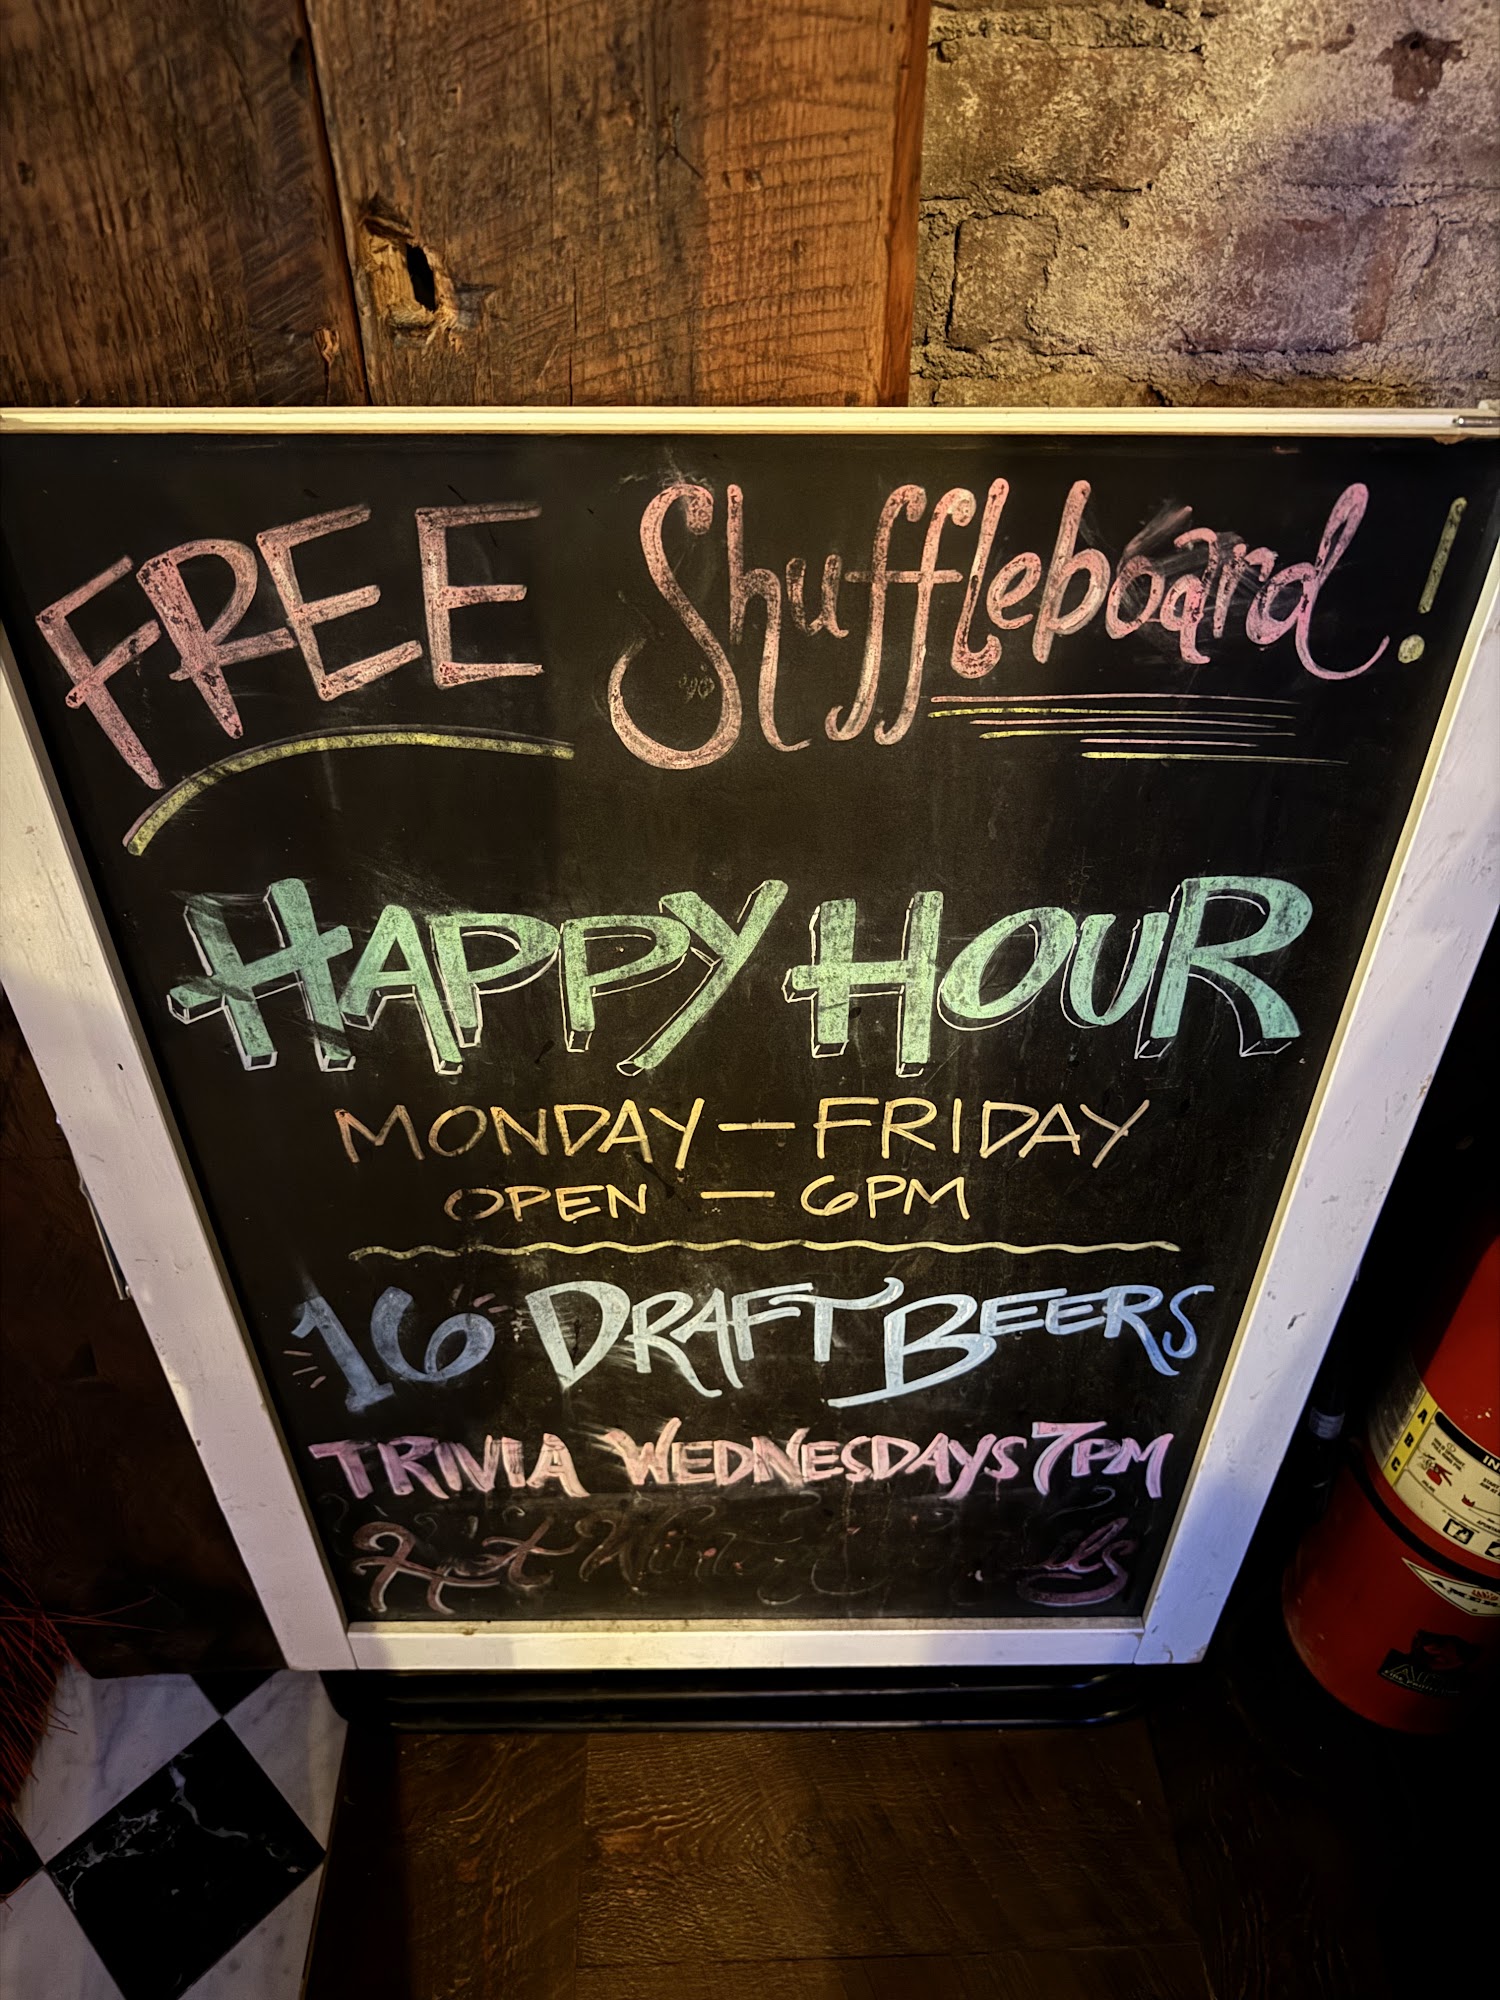 FREE Shuffleboard!
HAPPY HOUR
MONDAY — FRIDAY
OPEN — 6PM
16 DRAFT BEERS
TRIVIA WEDNESDAYS 7PM
A
B
C